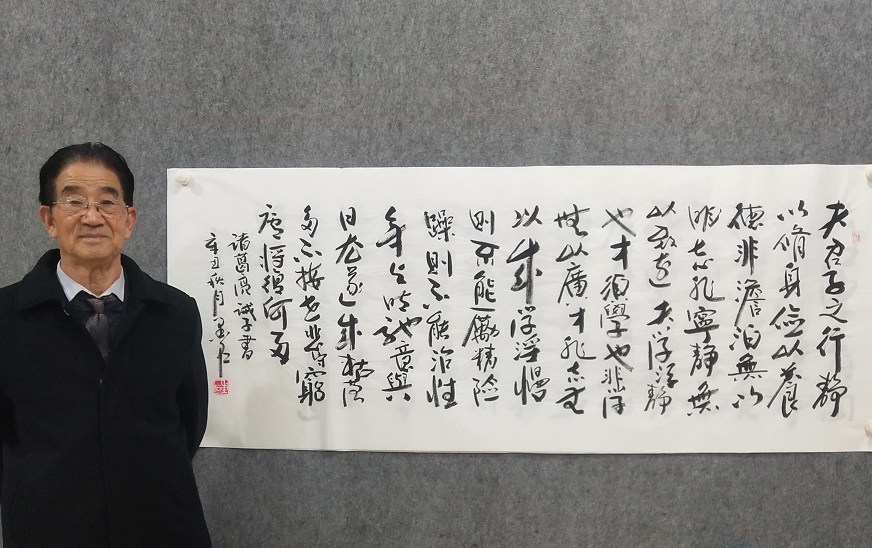 夫君子之行靜
以脩身儉以養
德非澹泊無以
明志非寧靜無
以致遠夫学須靜
也才須學也非学
無以廣才非志無
以成学淫慢
則不能勵精險
躁則不能治性
年与时馳意與
日去遂成枯落
多不接世悲守窮
廬將復何及
諸葛亮誡子書
辛丑秋月